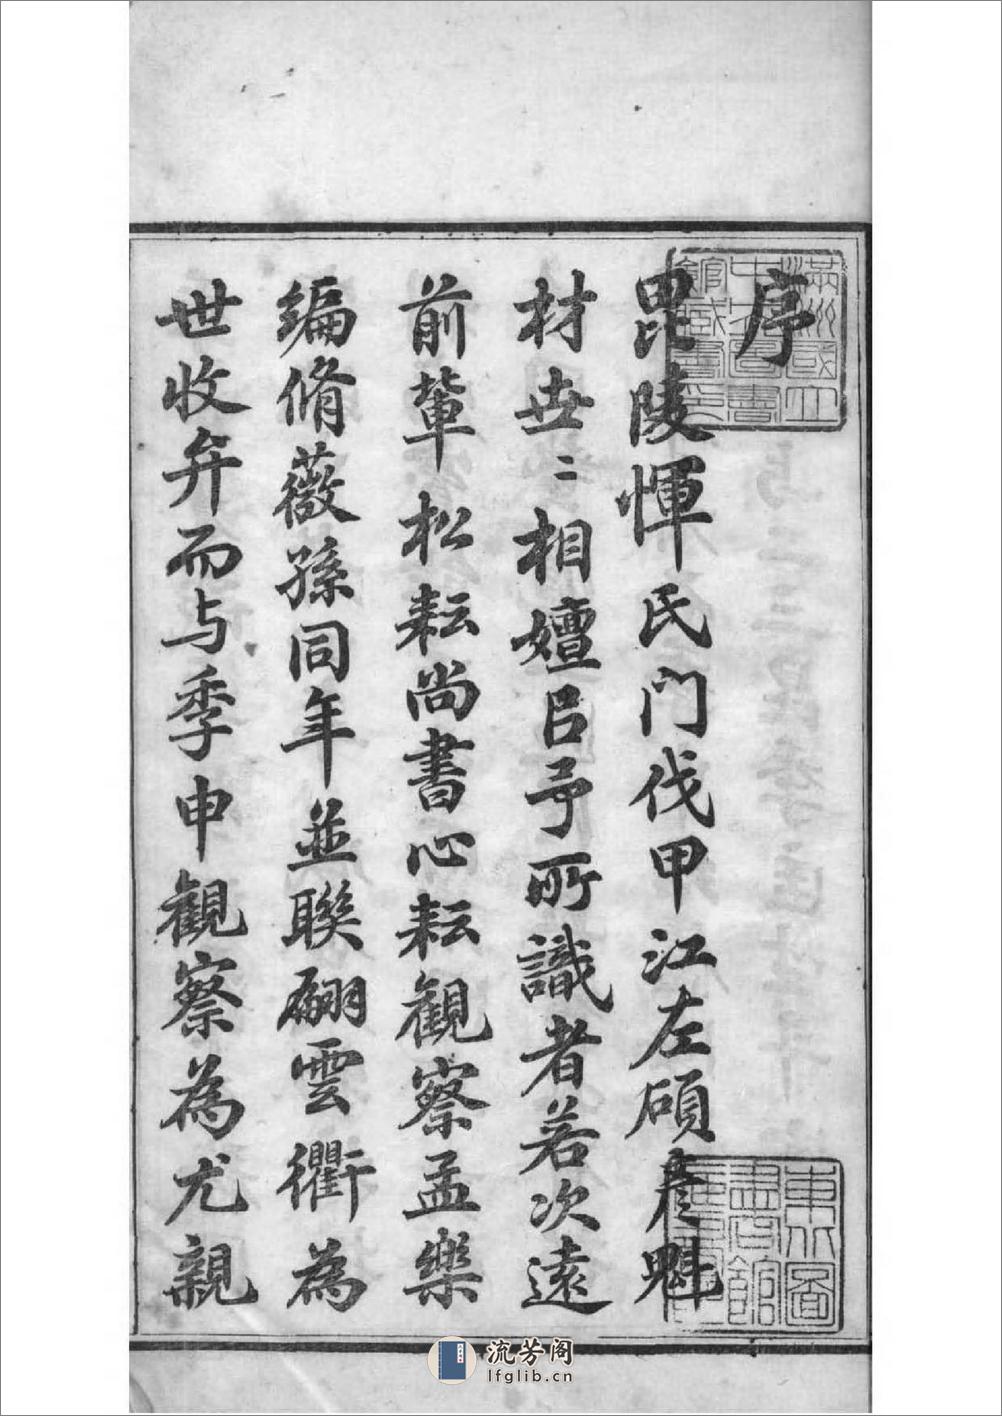 序
毘陵惲氏門伐甲江左碩彥魁
材世〻相嬗吕予所識者若次遠
前輩松耘尚書心耘觀察孟樂
編脩薇孫同年並聯翩雲衢為
世收弁而与季申觀察為尤親
滿洲國立中央圖書館藏書印
東北圖書館
流芳阁
lfglib.cn